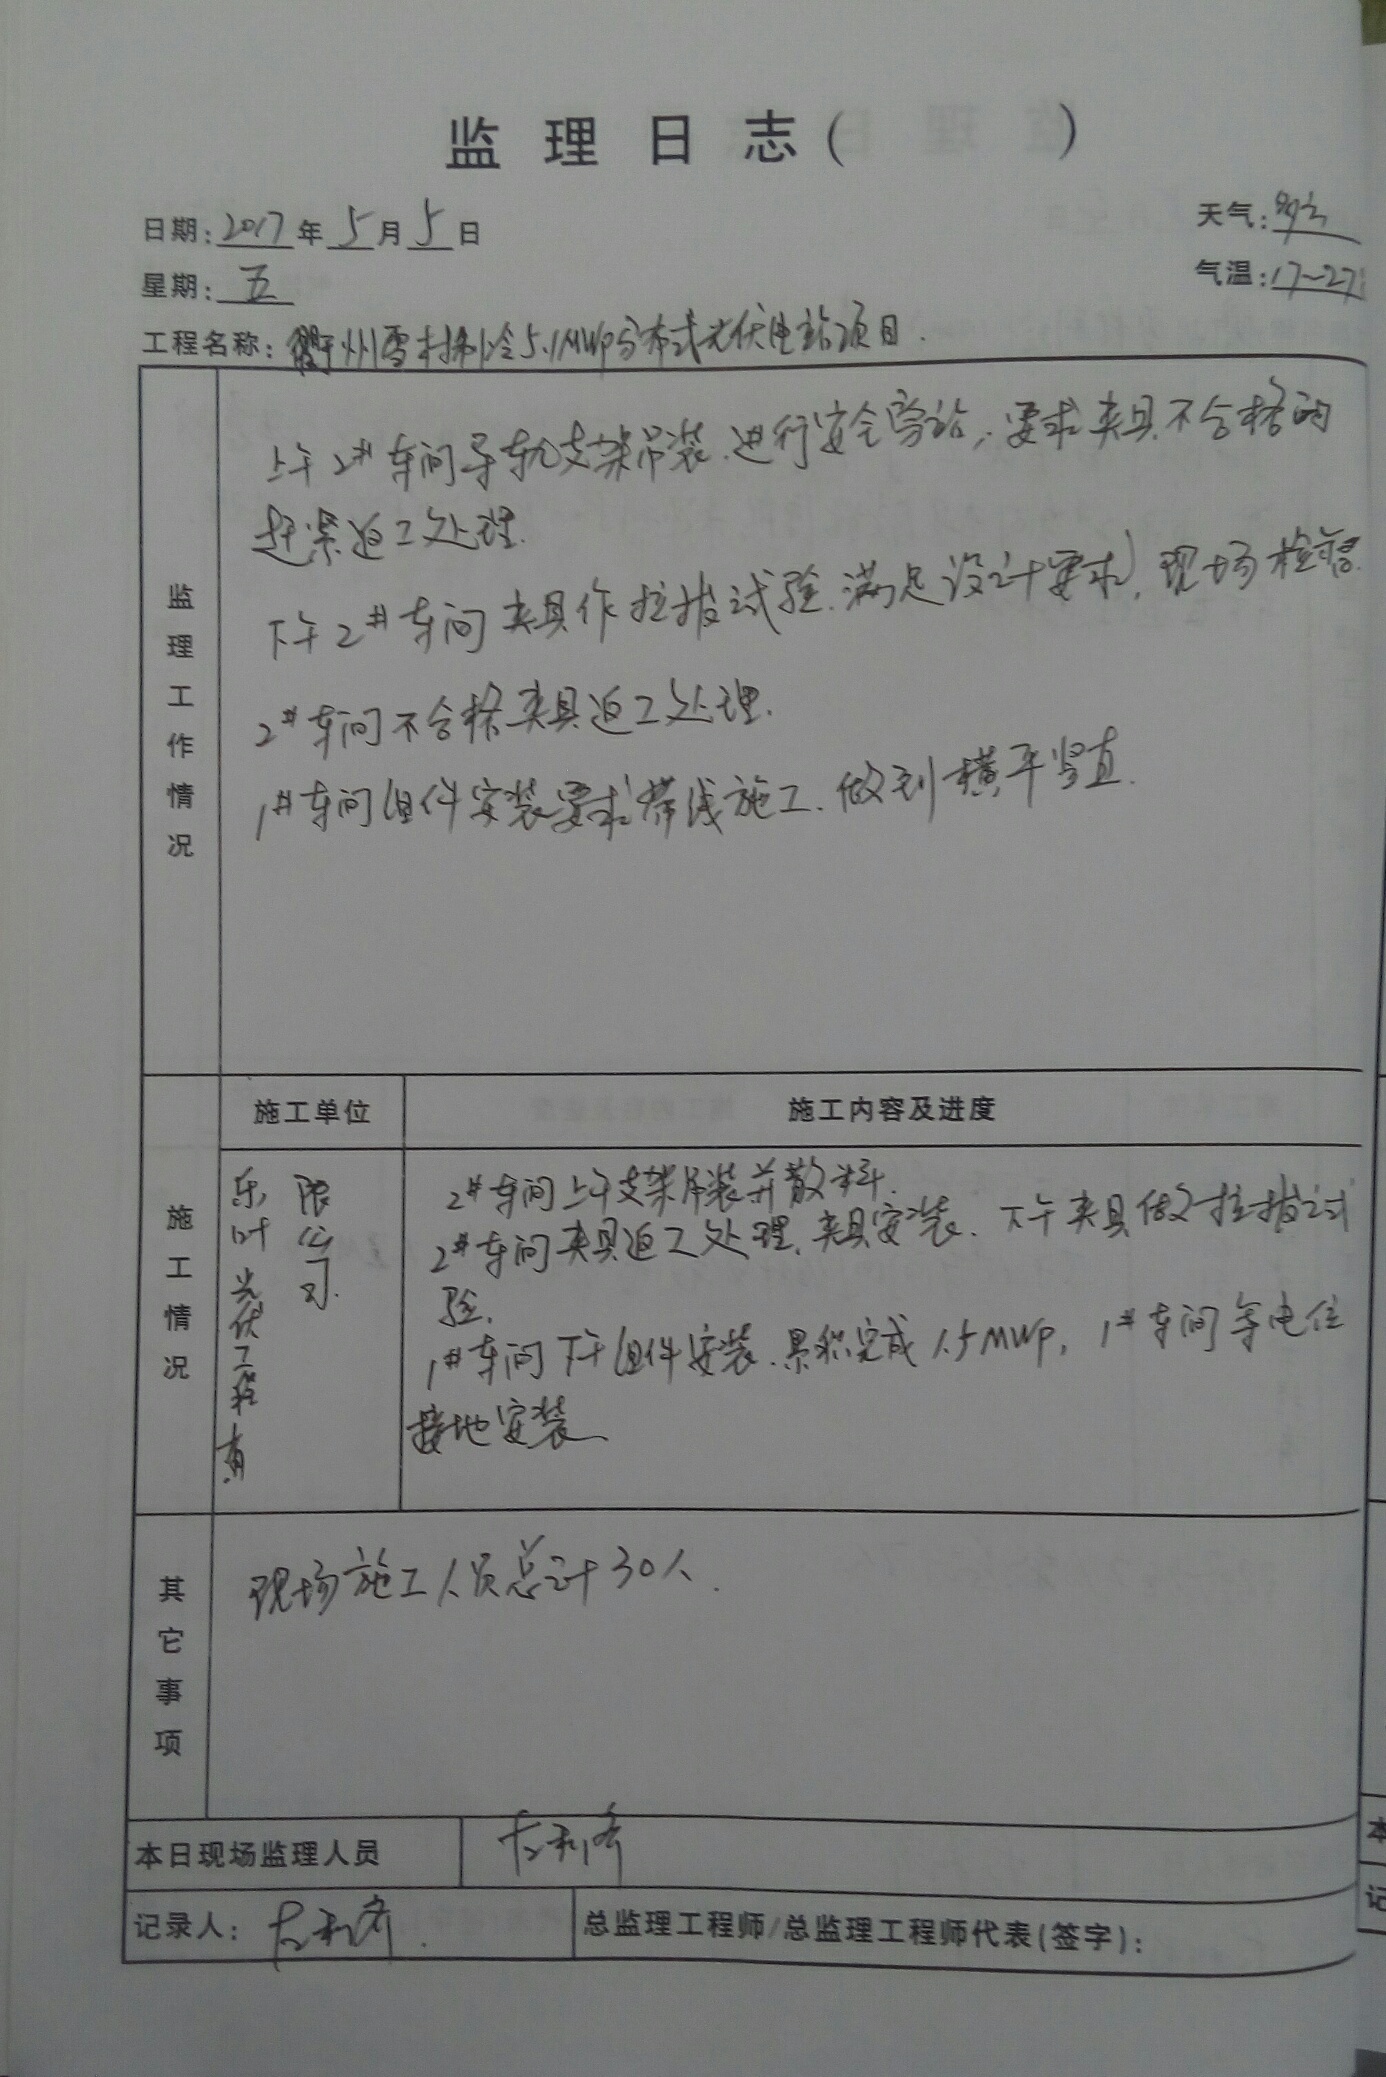 监理日志( )
日期:2017年5月5日
天气:
星期:五
气温:17~27
工程名称:衢州雪村制冷5.1MWP分布式光伏电站项目.
监理工作情况
上午2#车间导轨支架吊装.进行安全旁站,要求夹具不合格的
赶紧返工处理.
下午2#车间夹具作拉拔试验.满足设计要求,现场检查
2#车间不合格夹具返工处理.
1#车间组件安装要求带线施工.做到横平竖直.
施工单位
施工内容及进度
施工情况
乐叶光伏工程有
限公司.
2#车间上午支架吊装并散料.
2#车间夹具返工处理.夹具安装.下午夹具做拉拔试
验.
1#车间下午组件安装.累积完成1.5MWP,1#车间等电位
接地安装
其它事项
现场施工人员总计30人.
本日现场监理人员
记录人:
总监理工程师/总监理工程师代表(签字):